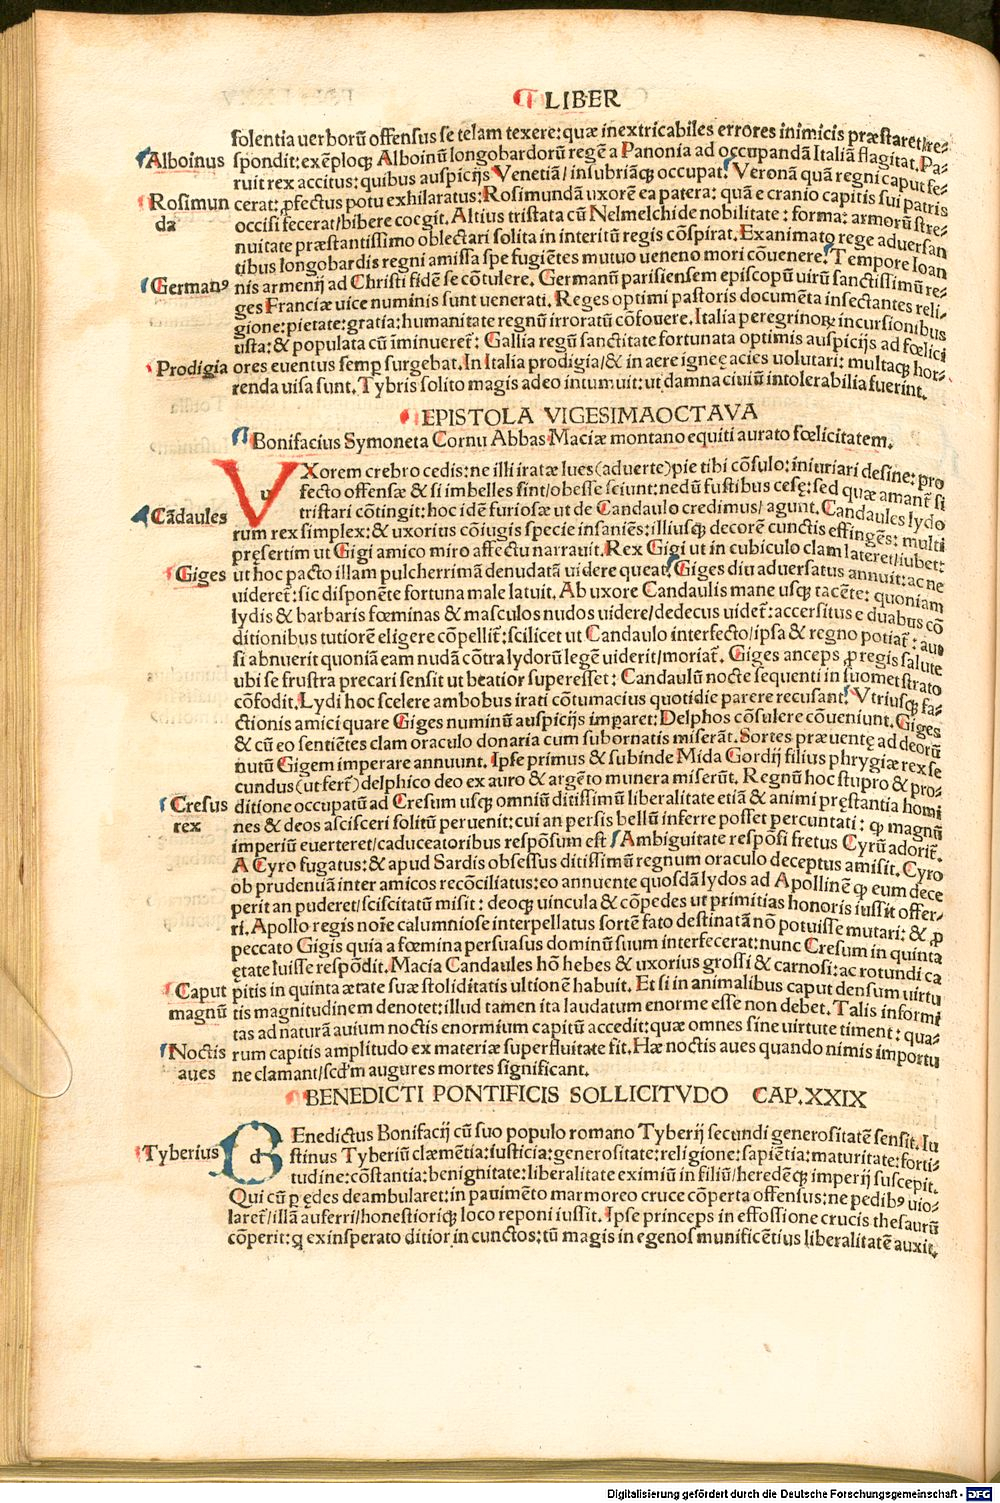 LIBER
solentia uerborū offensus se telam texere: quæ inextricabiles errores inimicis præstaret/re-
Alboinus spondit: exēploq; Alboinū longobardorū regē a Panonia ad occupandā Italiā flagitat. Pa-
ruit rex accitus: quibus auspicijs Venetiā/ insubriāq; occupat. Veronā quā regni caput fe-
Rosimun cerat: ꝓfectus potu exhilaratus: Rosimundā uxorē ea patera: quā e cranio capitis sui patris
da occisi fecerat/bibere coegit. Altius tristata cū Nelmelchide nobilitate: forma: armorū stre-
nuitate præstantissimo oblectari solita in interitū regis cōspirat. Exanimato rege aduersan
tibus longobardis regni amissa spe fugiētes mutuo ueneno mori cōuenere. Tempore Ioan
Germanꝰ nis armenij ad Christi fidē se cōtulere. Germanū parisiensem episcopū uirū sanctissimū re-
ges Franciæ uice numinis sunt uenerati. Reges optimi pastoris documēta insectantes reli-
gione: pietate: gratia: humanitate regnū irroratū cōfouere. Italia peregrinoꝝ incursionibus
usta: & populata cū iminueret̄: Gallia regū sanctitate fortunata optimis auspicijs ad fœlici
Prodigia ores euentus semp surgebat. In Italia prodigia/& in aere igneę acies uolutari: multaq; hor-
renda uisa sunt. Tybris solito magis adeo intumuit: ut damna ciuiū intolerabilia fuerint.
EPISTOLA VIGESIMAOCTAVA
Bonifacius Symoneta Cornu Abbas Maciæ montano equiti aurato fœlicitatem.
VXorem crebro cedis: ne illi iratæ lues (aduerte) pie tibi cōsulo: iniuriari desine: pro
u fecto offensæ & si imbelles sint/obesse sciunt: nedū fustibus cesę: sed quæ amant̄ si
Cādaules tristari cōtingit: hoc idē furiosæ ut de Candaule credimus/ agunt. Candaules lydo
rum rex simplex: & uxorius cōiugis specie insaniēs: illiusq; decorē cunctis effingēs: multi
pręsertim ut Gigi amico miro affectu narrauit. Rex Gigi ut in cubiculo clam lateret/iubet:
Giges ut hoc pacto illam pulcherrimā denudatā uidere queat. Giges diu aduersatus annuit: ac ne
uideret̄: sic disponēte fortuna male latuit. Ab uxore Candaulis mane usq; tacēte: quoniam
lydis & barbaris fœminas & masculos nudos uidere/dedecus uidet̄: accersitus e duabus cō
ditionibus tutiorē eligere cōpellit̄: scilicet ut Candaulo interfecto/ipsa & regno potiat̄: aut
si abnuerit quoniā eam nudā cōtra lydorū legē uiderit/moriat̄. Giges anceps ꝓ regis salute
ubi se frustra precari sensit ut beatior superesset: Candaulū nocte sequenti in suomet strato
cōfodit. Lydi hoc scelere ambobus irati cōtumacius quotidie parere recusant. Vtriusq; fa-
ctionis amici quare Giges numinū auspicijs imparet: Delphos cōsulere cōueniunt. Giges
& cū eo sentiētes clam oraculo donaria cum subornatis miserāt. Sortes præuentę ad deorū
nutū Gigem imperare annuunt. Ipse primus & subinde Mida Gordij filius phrygiæ rex se
cundus (ut fert̄) delphico deo ex auro & argēto munera miserūt. Regnū hoc stupro & pro-
Cresus ditione occupatū ad Cresum usq; omniū ditissimū liberalitate etiā & animi pręstantia homi
rex nes & deos ascisceri solitū peruenit: cui an persis bellū inferre posset percuntati: ꝙ magnū
imperiū euerteret/caduceatoribus respōsum est. Ambiguitate respōsi fretus Cyrū adorit̄.
A Cyro fugatus: & apud Sardis obsessus ditissimū regnum oraculo deceptus amisit. Cyro
ob prudentiā inter amicos recōciliatus: eo annuente quosdā lydos ad Apollinē ꝙ eum dece
perit an puderet/sciscitatū misit: deoq; uincula & cōpedes ut primitias honoris iussit offer-
ri. Apollo regis noīe calumniose interpellatus sortē fato destinatā nō potuisse mutari: & ꝓ
peccato Gigis quia a fœmina persuasus dominū suum interfecerat: nunc Cresum in quinta
ętate luisse respōdit. Macia Candaules hō hebes & uxorius grossi & carnosi: ac rotundi ca
Caput pitis in quinta ætate suæ stoliditatis ultionē habuit. Et si in animalibus caput densum uirtu
magnū tis magnitudinem denotet: illud tamen ita laudatum enorme esse non debet. Talis informi
tas ad naturā auium noctis enormium capitū accedit: quæ omnes sine uirtute timent: qua-
Noctis rum capitis amplitudo ex materiæ superfluitate fit. Hæ noctis aues quando nimis importu
aues ne clamant/scd'm augures mortes significant.
BENEDICTI PONTIFICIS SOLLICITVDO CAP. XXIX
BEnedictus Bonifacij cū suo populo romano Tyberij secundi generositatē sensit. Iu
Tyberius stinus Tyberiū clæmētia: iusticia: generositate: religione: sapiētia: maturitate: forti-
tudine: cōstantia: benignitate: liberalitate eximiū in filiū/heredēq; imperij suscepit.
Qui cū ꝑ ędes deambularet: in pauimēto marmoreo cruce cōperta offensus: ne pedibꝰ uio-
laret̄/illā auferri/honestioriq; loco reponi iussit. Ipse princeps in effossione crucis thesaurū
cōperit: q exinsperato ditior in cunctos: tū magis in egenos munificētius liberalitatē auxit.
Digitalisierung gefördert durch die Deutsche Forschungsgemeinschaft - DFG